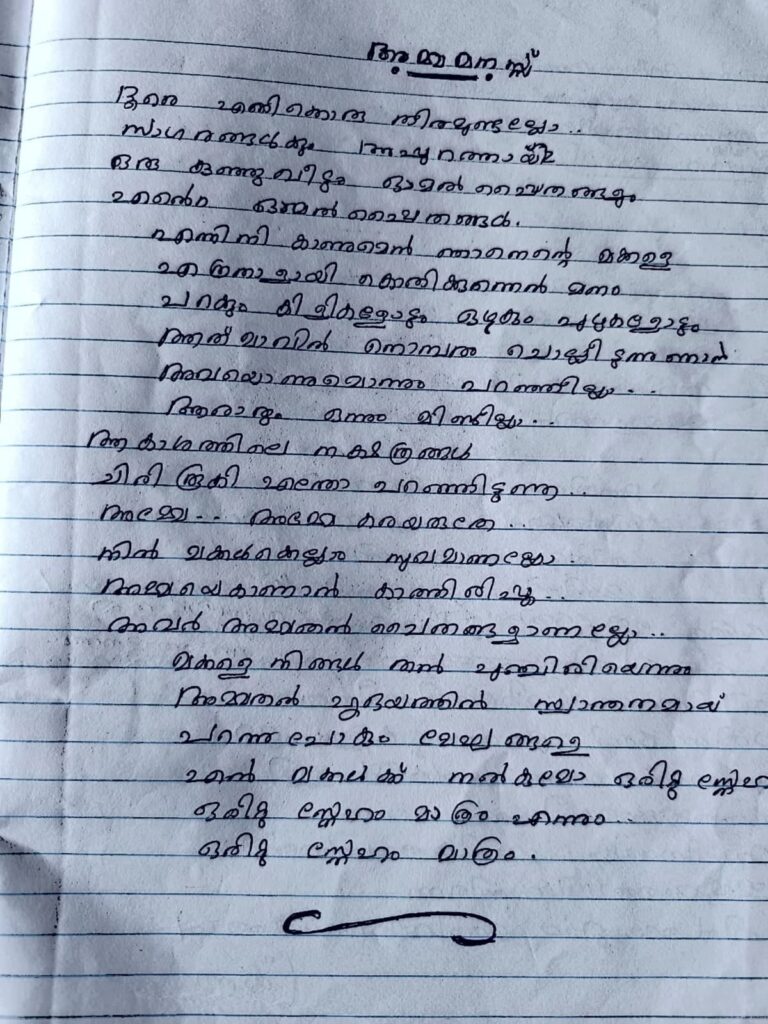 അമ്മ മനസ്സ്
ദൂരെ എനിക്കൊരു തീരമുണ്ടല്ലോ..
സാഗരങ്ങൾക്കും അപ്പുറത്തായ്
ഒരു കുഞ്ഞുവീടും ഓമൽ പൈതങ്ങളും
എന്റെ ഓമൽ പൈതങ്ങൾ.
എന്തിനി കാണുമെൻ ഞാനെന്റെ മക്കളെ
എത്രനാളായി കൊതിക്കുന്നെൻ മനം
പറക്കും കിളികളോടും ഒഴുകും പുഴകളോടും
ആത്മാവിൻ നൊമ്പരം ചൊല്ലിടുന്നു ഞാൻ
അവയൊന്നുമൊന്നും പറഞ്ഞില്ല..
ആരാരും ഒന്നും മിണ്ടീല്ല..
ആകാശത്തിലെ നക്ഷത്രങ്ങൾ
ചിരി തൂകി എന്തോ പറഞ്ഞിടുന്നു..
അമ്മേ.. അമ്മേ കരയരുതേ..
നിൻ മക്കൾക്കെല്ലാം സുഖമാണല്ലോ.
അമ്മയെകാണാൻ കാത്തിരിപ്പൂ..
അവർ അമ്മതൻ പൈതങ്ങളാണല്ലോ..
മക്കളെ നിങ്ങൾ തൻ പുഞ്ചിരിയെന്നും
അമ്മതൻ ഹൃദയത്തിൻ സ്വാന്തനമായ്
പറന്നു പോകും മേഘങ്ങളെ
എൻ മക്കൾക്ക് നൽകുമോ ഒരിറ്റു സ്നേഹം
ഒരിറ്റു സ്നേഹം മാത്രം എന്നും..
ഒരിറ്റു സ്നേഹം മാത്രം.